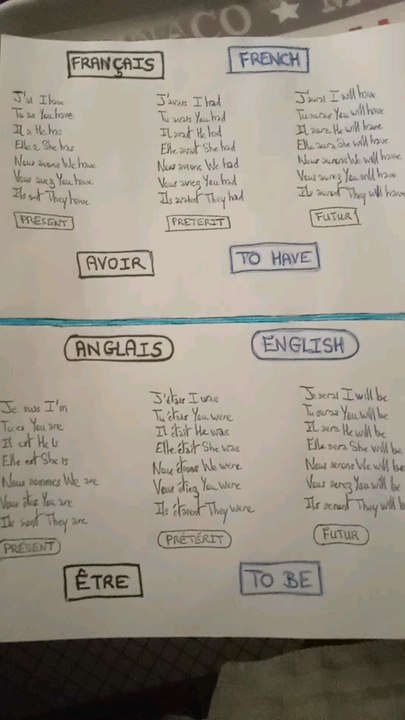 NACO ★ M
FRANÇAIS
FRENCH
J'ai I have
Tu as You have
Il a He has
Elle a She has
Nous avons We have
Vous avez You have
Ils ont They have
PRÉSENT
J'avais I had
Tu avais You had
Il avait He had
Elle avait She had
Nous avions We had
Vous aviez You had
Ils avaient They had
PRÉTÉRIT
J'aurai I will have
Tu auras You will have
Il aura He will have
Elle aura She will have
Nous aurons We will have
Vous aurez You will have
Ils auront They will have
FUTUR
AVOIR
TO HAVE
ANGLAIS
ENGLISH
Je suis I'm
Tu es You are
Il est He is
Elle est She is
Nous sommes We are
Vous êtes You are
Ils sont They are
PRÉSENT
J'étais I was
Tu étais You were
Il était He was
Elle était She was
Nous étions We were
Vous étiez You were
Ils étaient They were
PRÉTÉRIT
Je serai I will be
Tu You will be
Il sera He will be
Elle sera She will be
Nous serons We will be
Vous serez You will be
Ils seront They will be
FUTUR
ÊTRE
TO BE